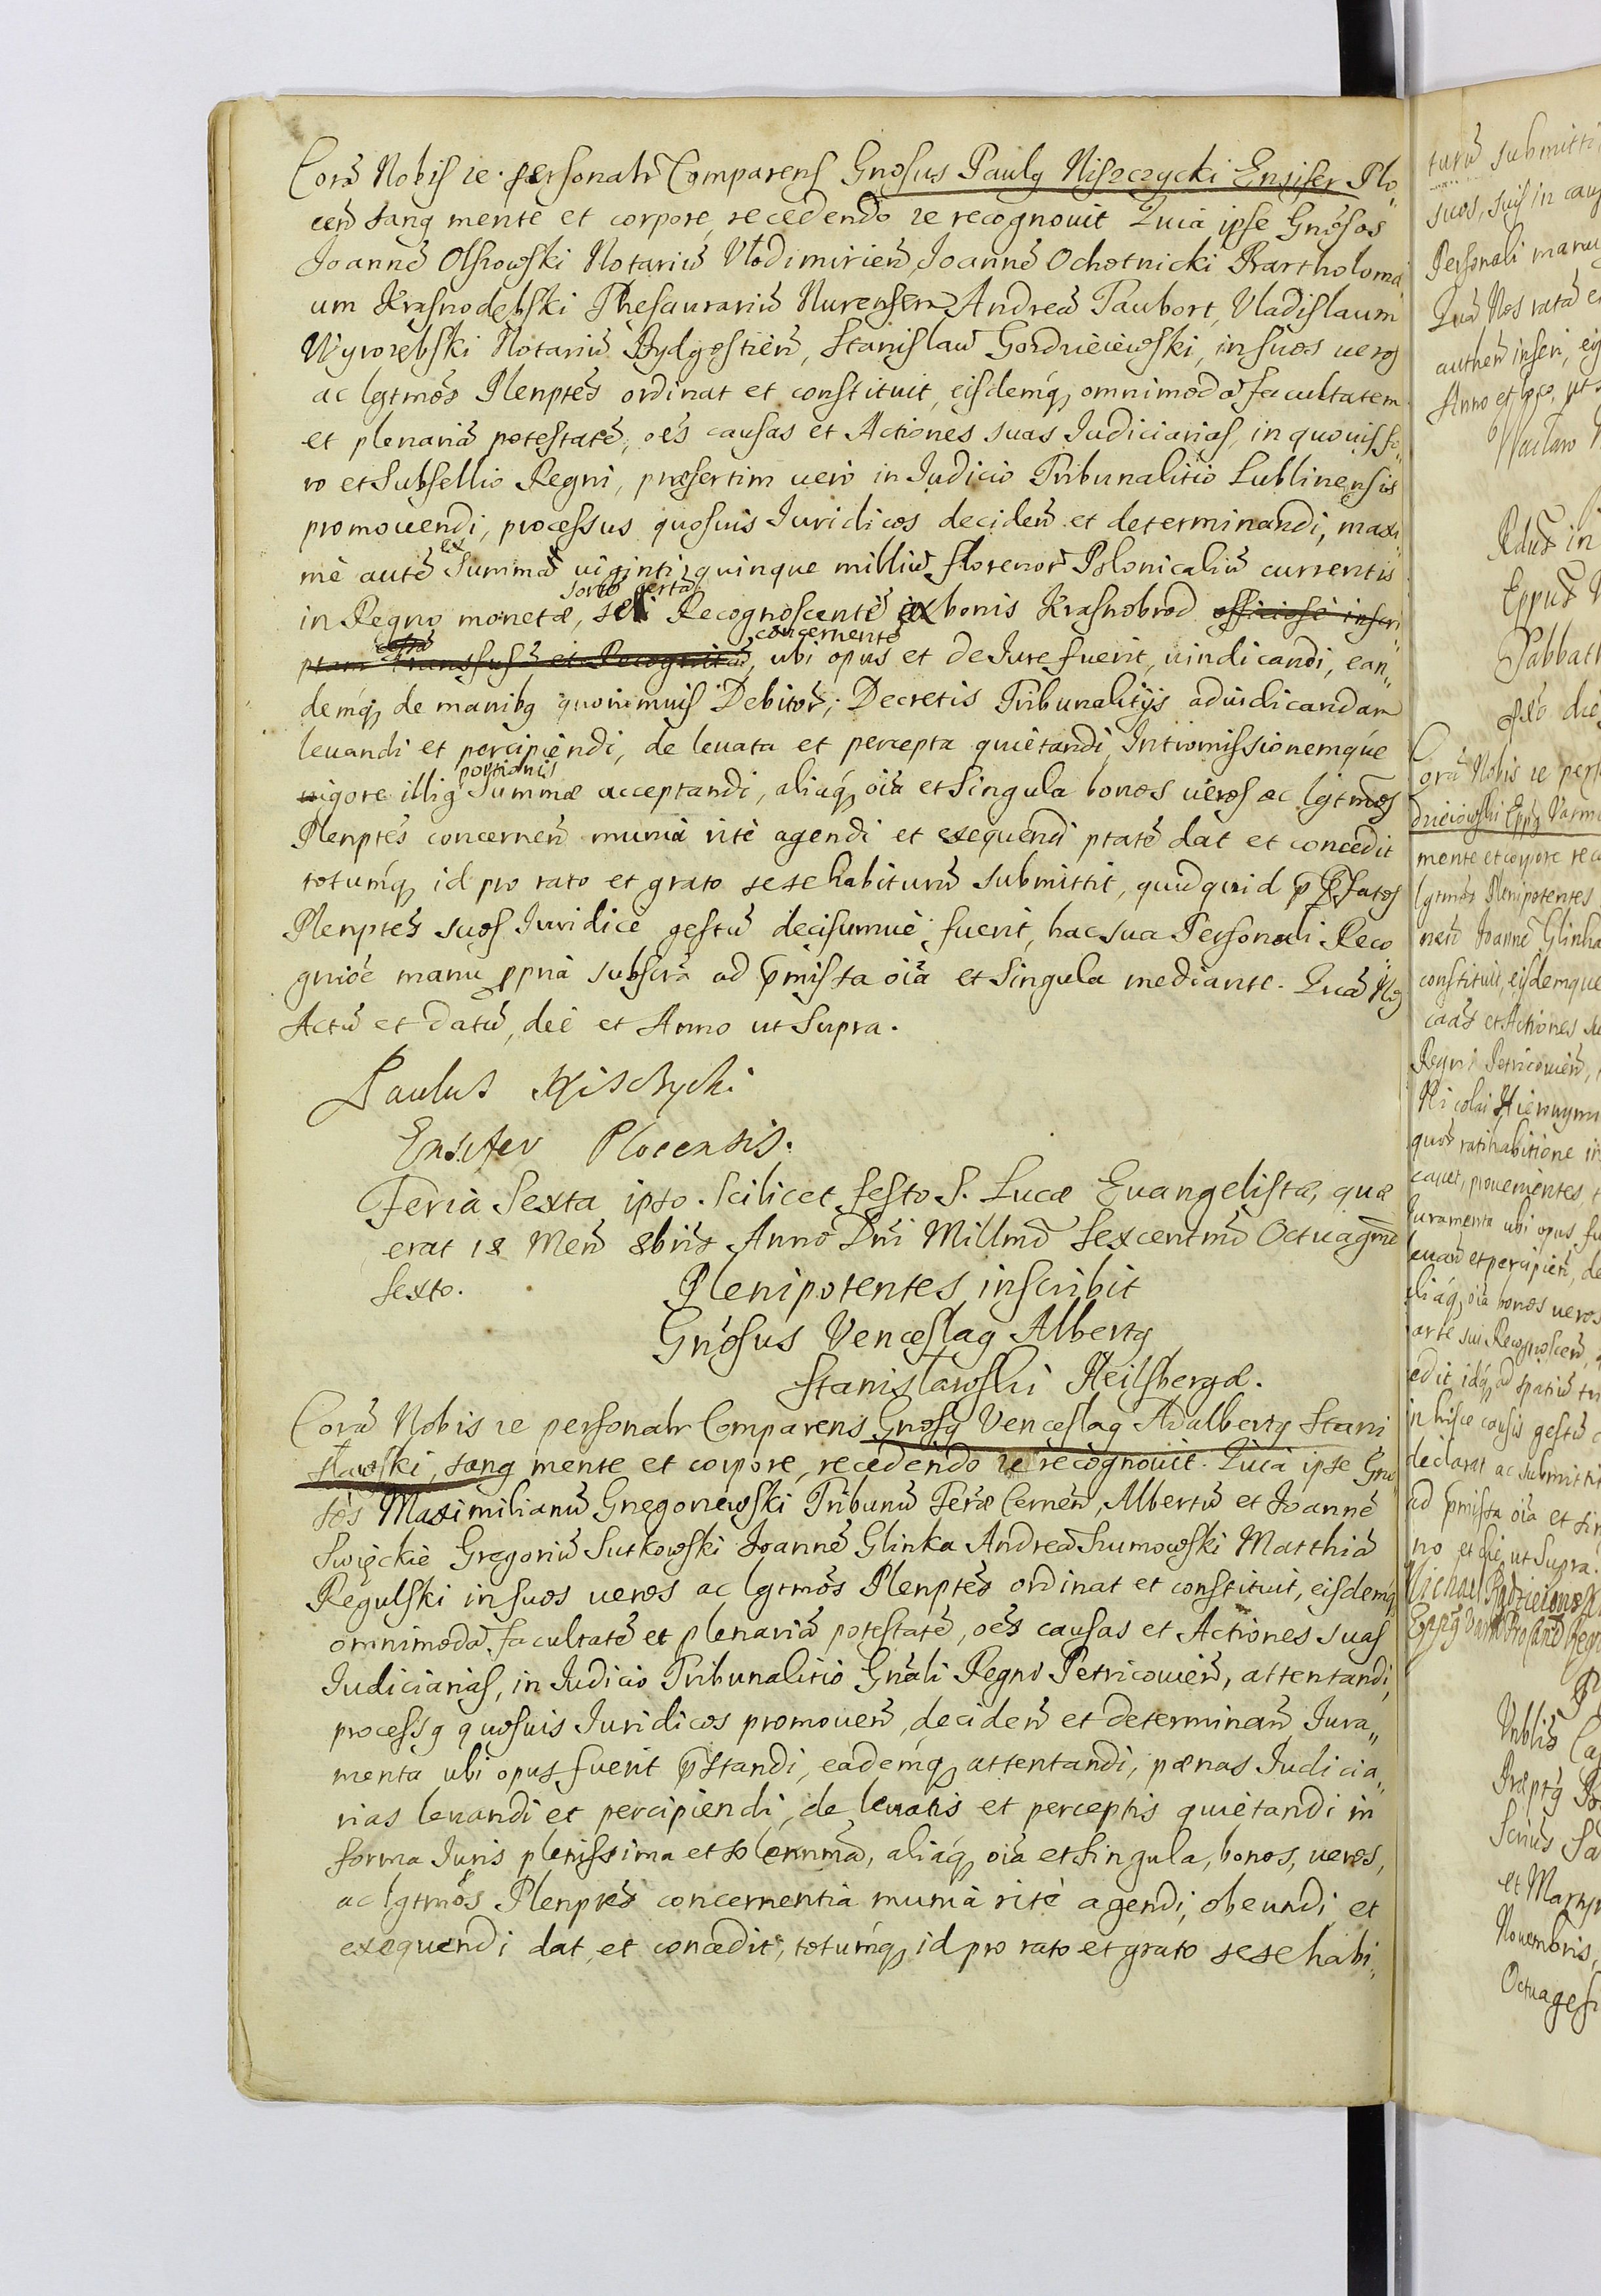 Corã Nobis re personalr Comparens Gnosus Paulg Niszczycki Ensifer Plo„
ceñ sang mente et corpore, recedendo re recognouit Quia ipse Gnosos
Joannẽ Olszowski Notariũ Vlodimirieñ, Joannẽ Ochotnicki Bartholomæ„
um Krasnodębski Thesaurariũ Nurensem Andreã Taubort, Vladislaum
Wyrozębski Notariũ Bydgostieñ, Stanislaũ Gordzieiewski, in suos ueros
ac lgtmos Plenptes ordinat et constituit, eisdemq, omnimodã facultatem
et plenariã potestatẽ, oẽs causas et Actiones suas Iudiciarias, in quouis fo„
ro et Subsellio Regni, præsertim uero in Iudicio Tribunalitio Lublinensis
promouendi, processus quosuis Iuridicos decideñ et determinandi, maxi„
mè autẽ ex Summã uiginti quinque milliũ florenoř Polonicaliũ currentis
sortẽ certã
in Regno monetæ, sibi Recognoscenti ex bonis Krasnobrod officiose inscri„
ptam Transfusã et Recognitã, concernentẽ ubi opus et de Iure fuerit, uindicandi, ean„
demq, de manibg quorumuis Debitoř, Decretis Tribunalitijs adiudicandam
leuandi et percipiendi, de leuata et percepta quietandi, Intromissionemque
uigore illig portionis Summæ acceptandi, aliaq, oia et singula bonos ueros ac lgtmos
Plenptes concerneñ munia ritè agendi et exequendi ptatẽ dat et concedit
totumq, id pro rato et grato sese habiturũ submittit, quidquid p præfatos
Plenptes suos Iuridice gestũ decisumuè fuerit, hac sua Personali Reco„
gnioe manu ppria subscra ad pmissa oia et singula mediante. Quã Ng
Actũ et datũ, die et Anno ut Supra.
Paulus Nisczycki
Ensifer Plocensis.
Feria Sexta ipso. scilicet festo S. Lucæ Euangelistæ, quæ
erat 18 Meñ 8bris Anno Dni Millmo Sexcentmo Octuagmo
Sexto.
Plenipotentes inscribit
Gnosus Venceslag Albertg
Stanisławski Heilsbergæ.
Corã Nobis re personalr Comparens Gnosg Venceslag Adalbertg Stani
sławski, sang mente et corpore, recedendo re recognouit. Quia ipse Gno
sos Maximilianũ Gregorzewski Tribunũ Terræ Cerneñ, Albertũ et Joannẽ
Swięckie Gregoriũ Sutkowski Joannẽ Glinka Andreã Szumowski Matthiã
Regulski in suos ueros ac lgtmos Plenptes ordinat et constituit, eisdemq
omnimodã facultatẽ et plenariã potestatẽ, oẽs causas et Actiones suas
Iudiciarias, in Iudicio Tribunalitio Gnali Regni Petricouieñ, attentandi,
processg quosuis Iuridicos promoueñ, decideñ et determinañ, Iura„
menta ubi opus fuerit pstandi, eademq, attentandi, pænas Iudicia„
rias leuandi et percipiendi, de leuatis et perceptis quietandi in
forma Iuris plenissima et solennmã, aliaq, oia et singula, bonos, ueros,
ac lgtmos Plenptes concernentia munia ritè agendi, obeundi et
exequendi dat et concedit, totumq, id pro rato et grato sese habi„
turũ submitti
suos, suis in caus
Personali manu
Quã Nos ratã
autheñ inseri,
Anno et loco, ut
Rdus in
Eppus
Sabbath
Corã Nobis re pers
mente et corpore rec
lgtmos Plenipotentes
neñ Joannẽ Glinka
constituit, eisdemque
caãs et Actiones su
Regni Petricouieñ,
Nicolai Hieronymi
quos ratihabitione in
cauet, prouenientes
Iuramenta ubi opus fu
leuañ et percipieñ, de
aliaq, oia bonos ueros
arte sui Recognosceñ,
edit, idq, ad spatiũ tri
in hisce causis gestũ
declarat ac submittit
ad pmissa oia et sin
no et die ut Supra.
et Martyr
Nouembris,
Octuagesi